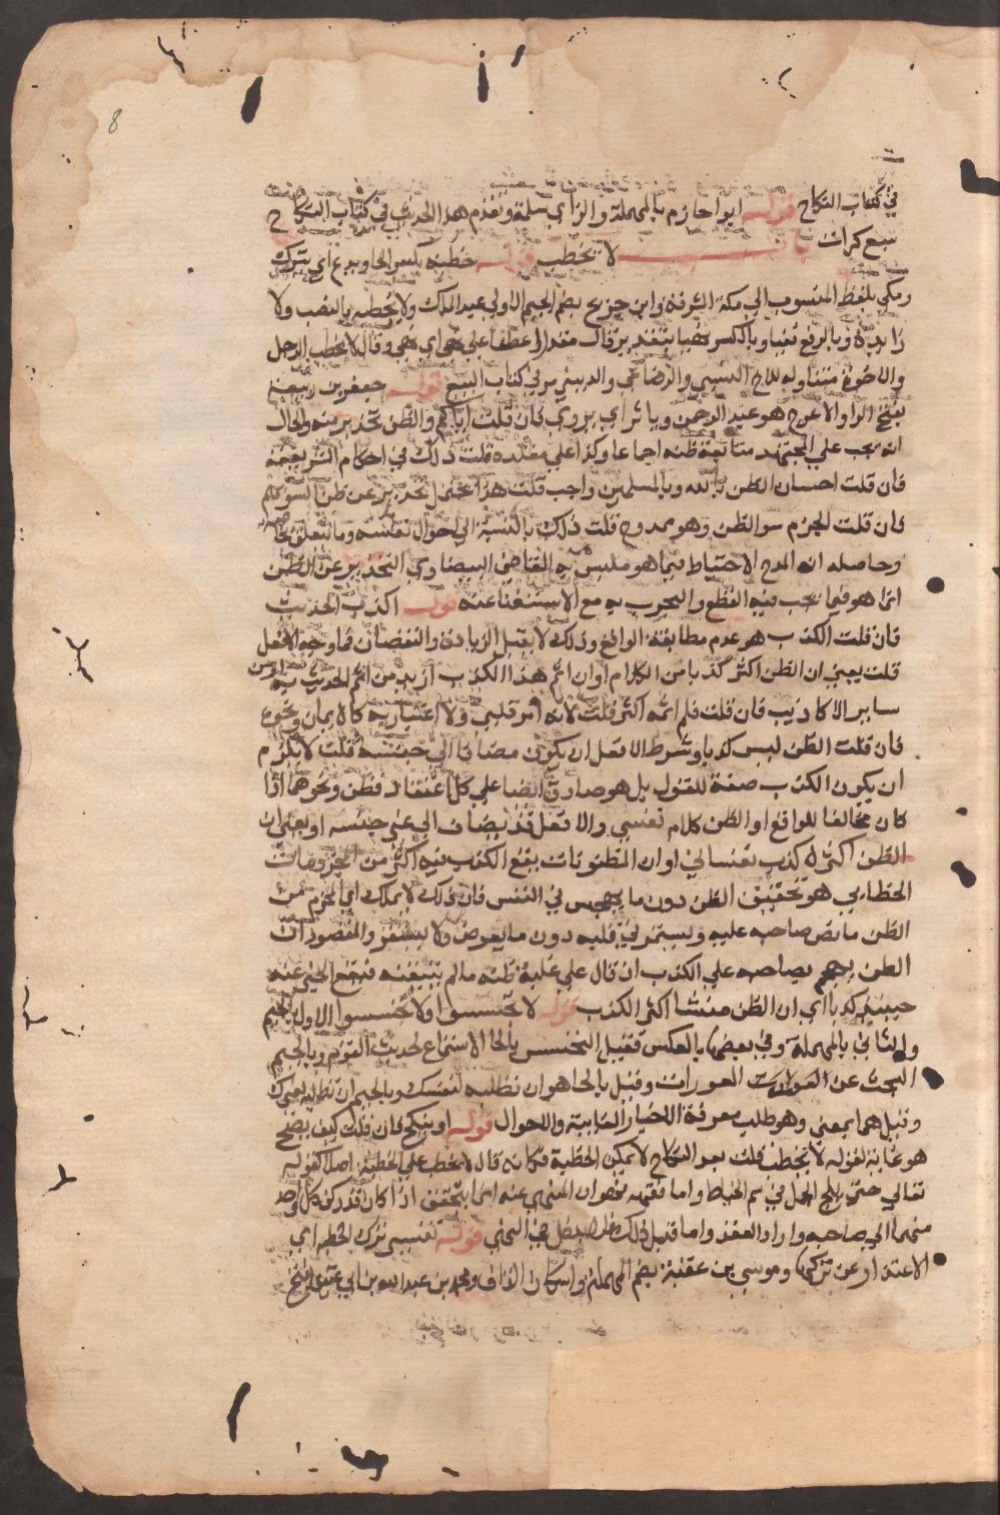 8
في كتاب النكاح قوله ابو احازم بالمهملة والزاي سلمة وتقدم هذا الحديث في كتاب النكاح
سبع كرات باب لا يخطب قوله خطبة بكسر الخا ويدع اي يترك
ومكي بلفظ المنسوب الي مكة الشرفة وابن جريج بضم الجيم الاولي عبد الملك ولا يخطب بالنصب ولا
زايدة وبالرفع نفيا وبالكسر نهيا بتقدير قال مقدرا عطفا علي نهي اي نهي وقال لا يخطب الرجل
والاخوة متناوله للاخ النسبي والرضاعي والديني مر في كتاب البيع قوله جعفر بن ربيعة
بفتح الرا والاعرج هو عبد الرحمن وياثر اي يروي فان قلت اياكم والظن تحذير منه والحال
انه يجب علي المجتهد متابعة ظنه اجماعا وكذا علي مقلده قلت ذلك في احكام الشريعة
فان قلت احسان الظن بالله وبالمسلمين واجب قلت هذا تحذير عن ظن السوء بهم
فان قلت الجزم سو الظن وهو ممدوح قلت ذلك بالنسبة الي احوال نفسه وما يتعلق بخاصته
وحاصله ان المدح الاحتياط فيما هو ملبس به القاضي البيضاوي التحذير عن الظن
انما هو فيما يجب فيه القطع والتجرب به مع الاستغنا عنه قوله اكذب الحديث
فان قلت الكذب هو عدم مطابقة الواقع وذلك لا يقبل الزيادة والنقصان فما وجه الافعل
قلت يعني ان الظن اكثر كذبا من الكلام او ان اثم هذا الكذب ازيد من اثم الحديث به او من
ساير الاكاذيب فان قلت فلم اثمه اكثر قلت لانه امر قلبي ولا اعتبار به كالايمان ونحوه
فان قلت الظن ليس كذبا وشرط الافعل ان يكون مضافا الي جنسه قلت لا يلزم
ان يكون الكذب صفة للقول بل هو صادق ايضا علي كل اعتقاد وظن ونحوهما اذا
كان مخالفا للواقع او الظن كلام نفسي والافعل قد يضاف الي غير جنسه او يعني ان
الظن اكثره كذب او ان المظنونات يقع الكذب فيه اكثر من المجزومات
الخطابي هو تحقيق الظن دون ما يهجس في النفس فان ذلك لا يملك اي المحرم من
الظن ما يصر صاحبه عليه ويستمر في قلبه دون ما يعرض ولا يستقر والمقصود ان
الظن يهجم بصاحبه علي الكذب ان قال علي غلبة ظنه ما لم يتيقنه فيقع الخبر عنه
حينئذ كذبا اي ان الظن منشا اكثر الكذب قوله لا تجسسوا ولا تحسسوا الاول بالجيم
والثاني بالمهملة وفي بعضها بالعكس فقيل التحسس بالحا الاستماع لحديث القوم وبالجيم
البحث عن العورات وقيل بالحا هو ان تطلبه لنفسك وبالجيم ان تطلبه لغيرك
وقيل هما بمعني وهو طلب معرفة الاخبار الغايبة والاحوال قوله او ينكح فان قلت كيف يصح
هو غاية لقوله لا يخطب قلت بعد النكاح لا يمكن الخطبة فكانه قال لا يخطب علي الخطبة اصلا كقوله
تعالي حتي يلج الجمل في سم الخياط واما فقهه فهو ان المنهي عنه انما يتحقق اذا كان قد ركن كل واحد
منهما الي صاحبه واراد العقد واما قبل ذلك فلا يدخل في النهي قوله تفسير ترك الخطبة اي
الاعتذار عن تركها وموسي بن عقبة بضم المهملة واسكان القاف ومحمد بن عبد الله بن ابي عتيق بفتح